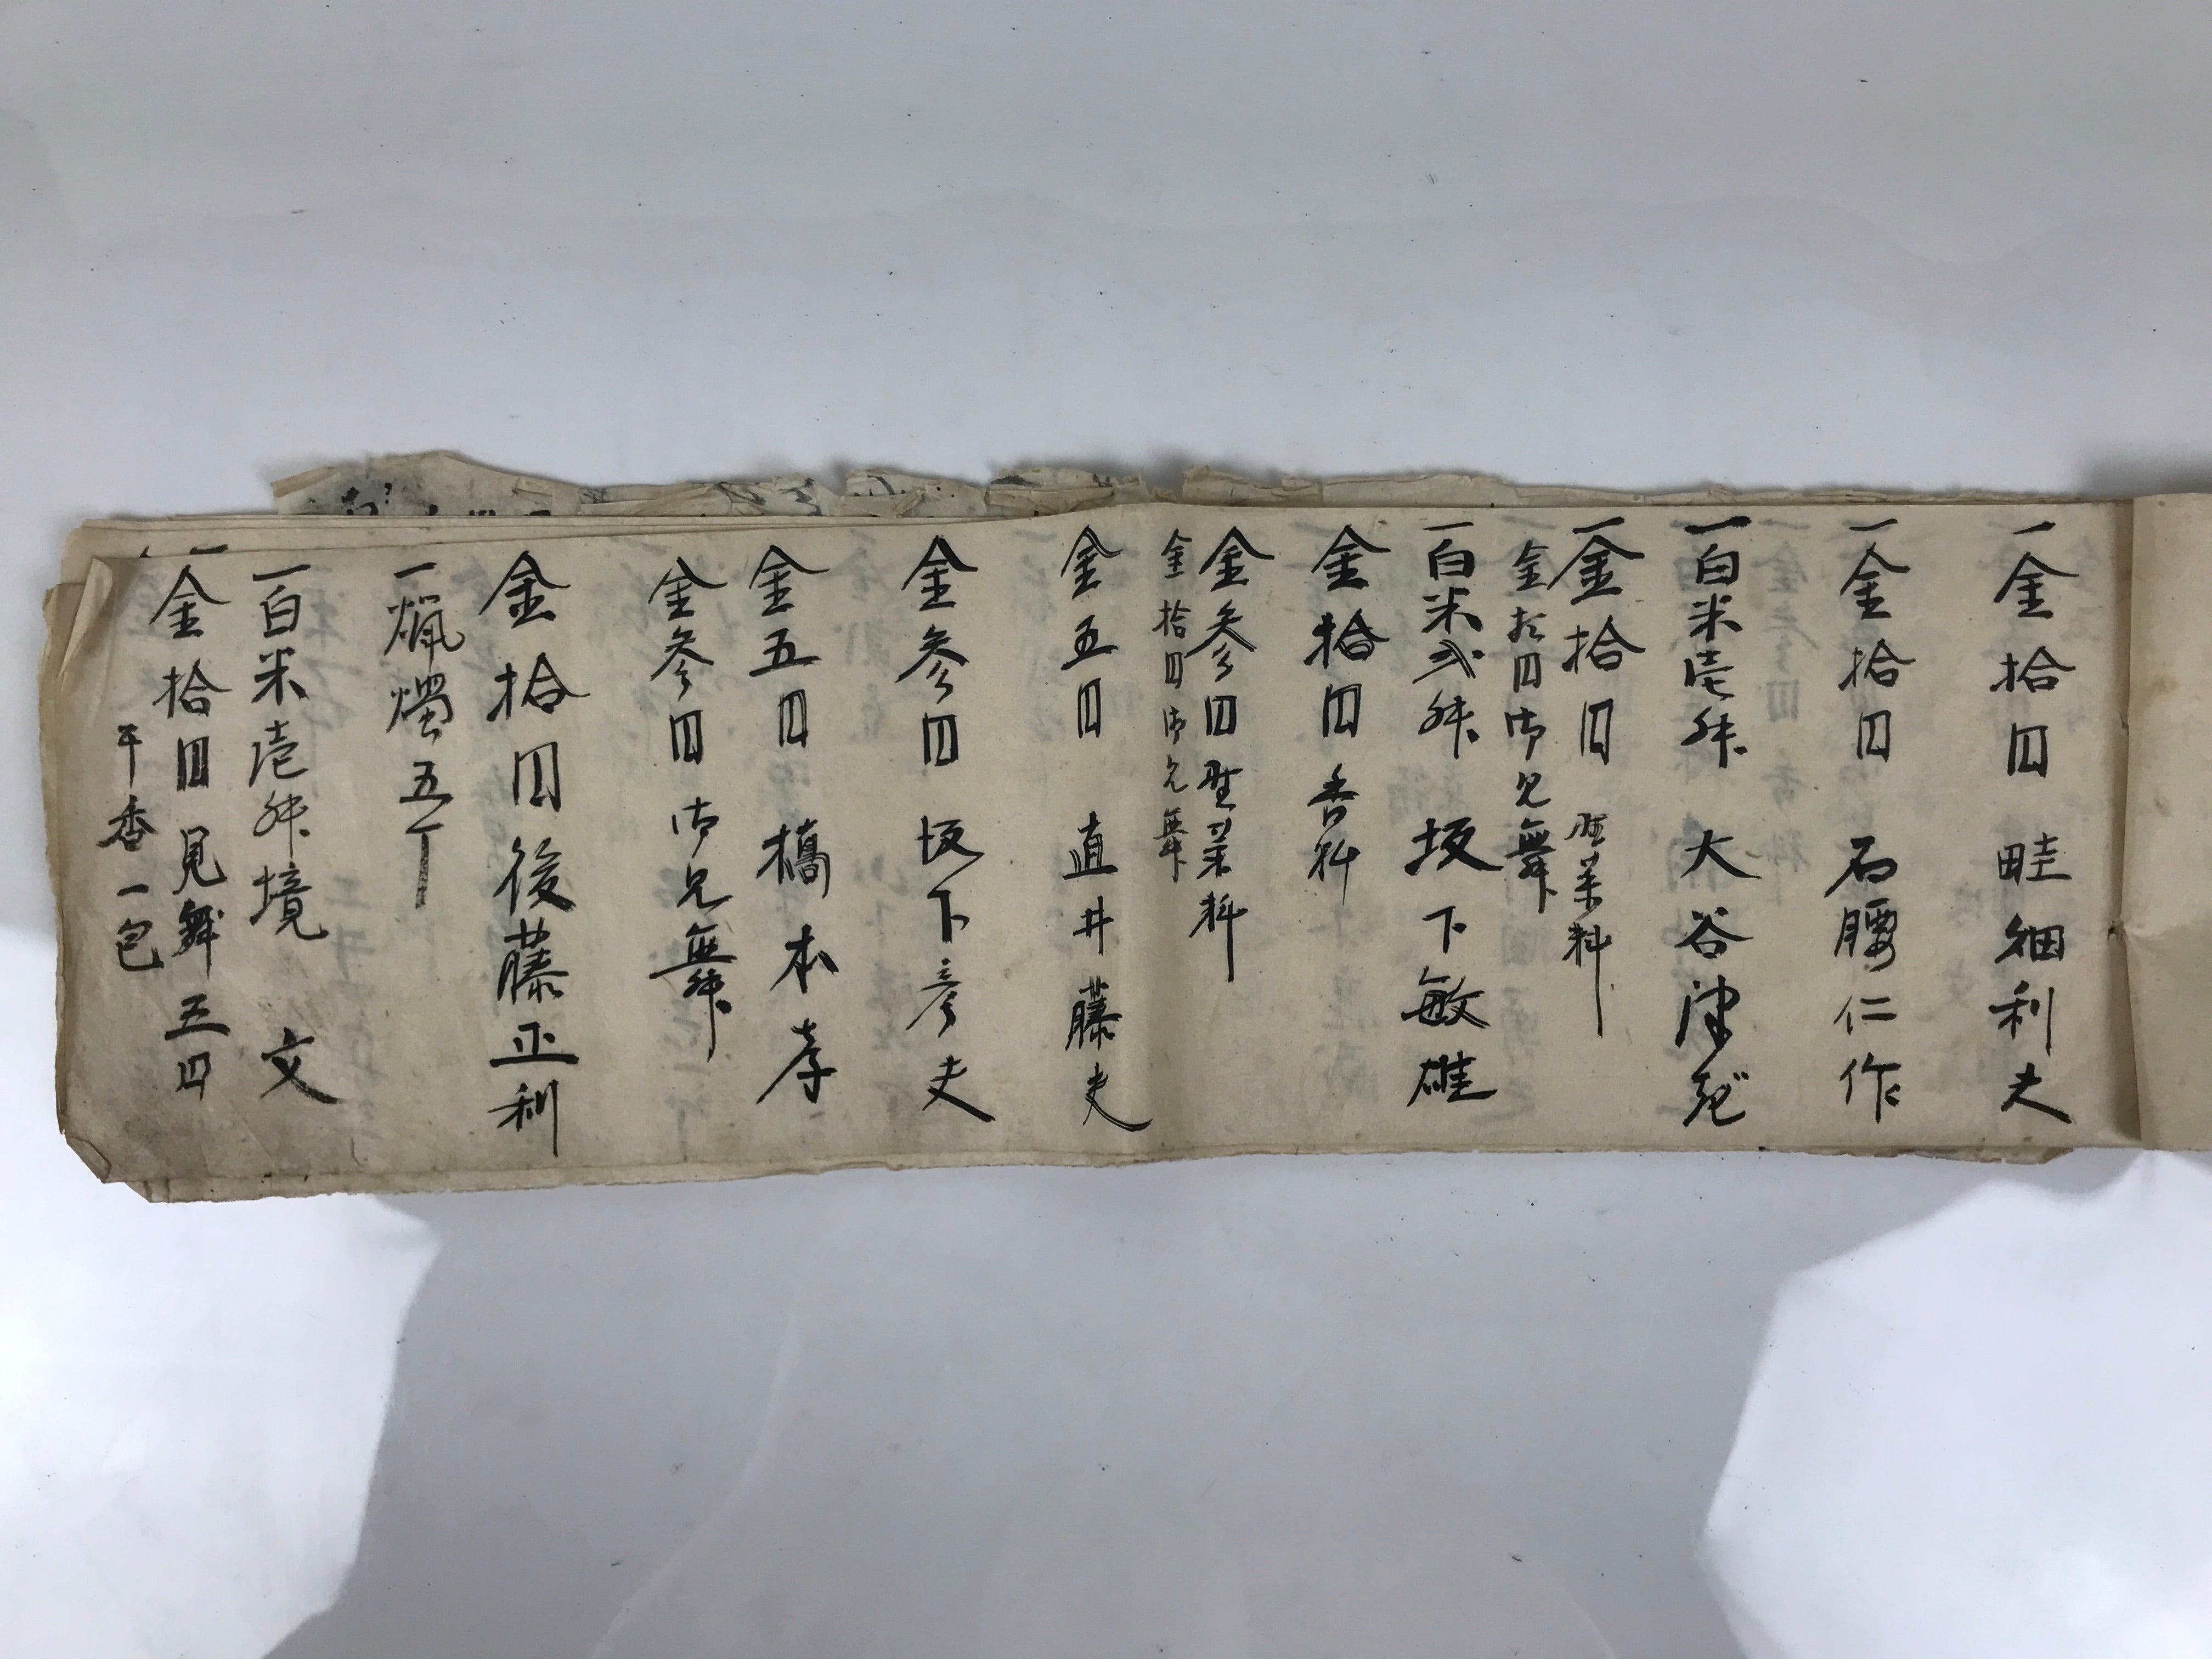 一金拾円 畦畑利夫
一金拾円 石腰仁作
一白米壱升 大谷津
一金拾円 野菜料
金拾円御見舞
一白米弐升 坂下敏雄
金拾円香料
金参円野菜料
金拾円御見舞
金五円 直井藤夫
金参円 坂下彦夫
金五円 橋本孝
金参円御見舞
金拾円後藤正利
一蝋燭五丁
一白米壱升境 文
一金拾円見舞五円
干香一包